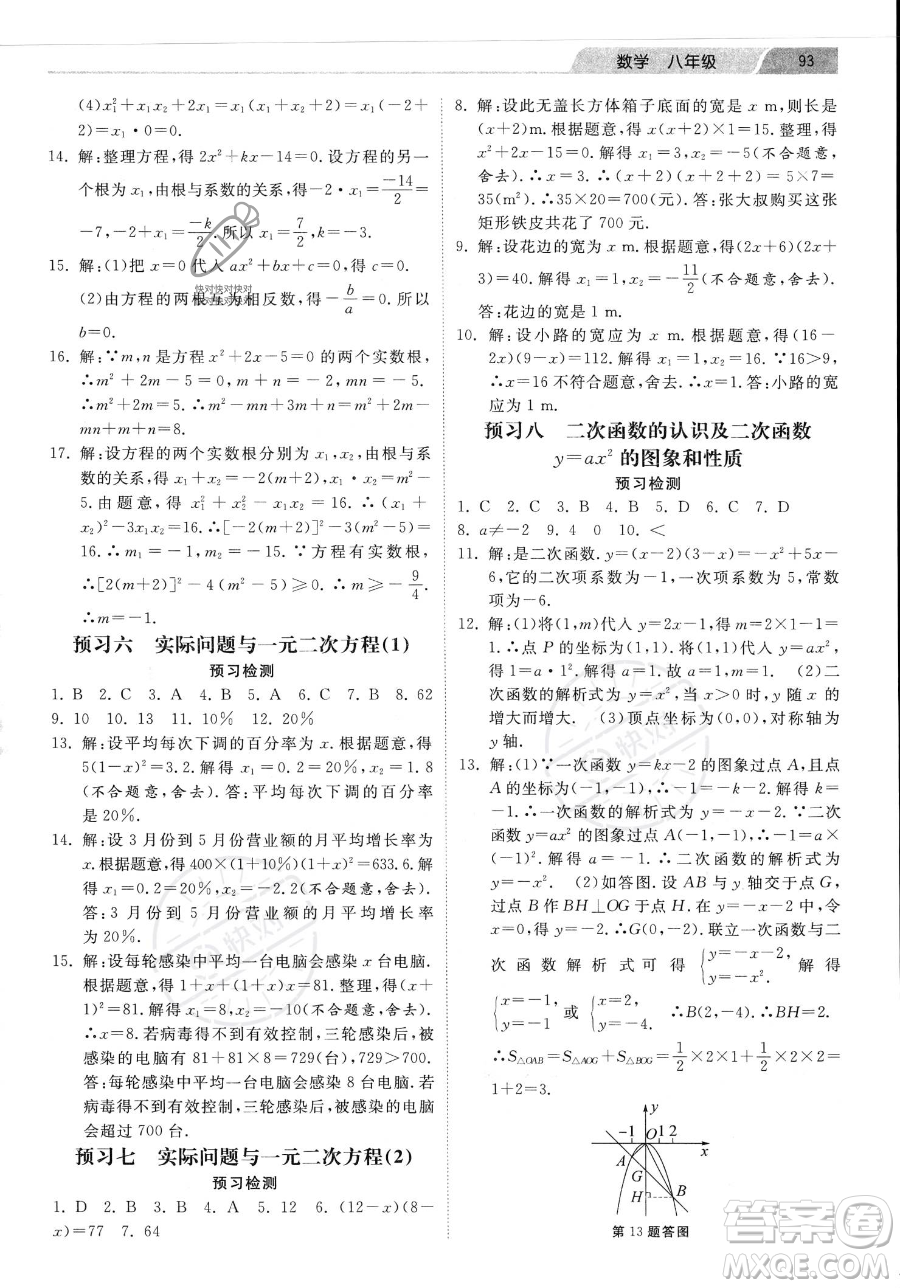 数学 八年级 93
(4)x₁²+x₁x₂+2x₁=x₁(x₁+x₂+2)=x₁(-2+
2)=x₁·0=0.
14. 解:整理方程,得2x²+kx-14=0.设方程的另一
个根为x₁,由根与系数的关系,得-2·x₁=-14/2=
-7,-2+x₁=-k/2.所以x₁=7/2,k=-3.
15. 解:(1)把x=0代入ax²+bx+c=0,得c=0.
(2)由方程的两根互为相反数,得-b/a=0.所以
b=0.
16. 解:∵m,n是方程x²+2x-5=0的两个实数根,
∴m²+2m-5=0,mn=-5,m+n=-2.
∴m²+2m=5.∴m²-mn+3m+n=m²+2m-
mn+m+n=8.
17. 解:设方程的两个实数根分别为x₁,x₂.由根与系
数的关系,得x₁+x₂=-2(m+2),x₁x₂=m²-
5.由题意,得x₁²+x₂²-x₁x₂=16.∴(x₁+
x₂)²-3x₁x₂=16.∴[-2(m+2)]²-3(m²-5)=
16.∴m₁=-1,m₂=-15.∵方程有两个实数根,
∴[2(m+2)]²-4(m²-5)≥0.∴m≥-9/4.
∴m=-1.
预习六 实际问题与一元二次方程(1)
预习检测
1. B 2. C 3. A 4. B 5. A 6. C 7. B 8. 62
9. 10 10. 13 11. 10% 12. 20%
13. 解:设平均每次下调的百分率为x.根据题意,得
5(1-x)²=3.2.解得x₁=0.2=20%,x₂=1.8
(不合题意,舍去).答:平均每次下调的百分率是
20%.
14. 解:设3月份到5月份营业额的月平均增长率为
x.根据题意,得400×(1+10%)(1+x)²=633.6.解
得x₁=0.2=20%,x₂=-2.2(不合题意,舍去).
答:3月份到5月份营业额的月平均增长率
为20%.
15. 解:设每轮感染中平均一台电脑会感染x台电脑.
根据题意,得1+x+(1+x)x=81.整理,得
(1+x)²=81.解得x₁=8,x₂=-10(不合题意,舍去).
∴x=8.若病毒得不到有效控制,三轮感染后,被
感染的电脑有81+81×8=729(台),729>700.
答:每轮感染中平均一台电脑会感染8台电脑.若
病毒得不到有效控制,三轮感染后,被感染的电脑
会超过700台.
预习七 实际问题与一元二次方程(2)
预习检测
1. D 2. B 3. C 4. B 5. C 6. (12-x)(8-
x)=77 7. 64
8. 解:设此无盖长方体箱子底面的宽是x m,则长是
(x+2)m.根据题意,得x(x+2)×1=15.整理,得
x²+2x-15=0.解得x₁=3,x₂=-5(不合题意,
舍去).∴x=3.∴(x+2+2)(x+2)=5×7=
35(m²).∴35×20=700(元).答:张大叔购买这张
矩形铁皮共花了700元.
9. 解:设花边的宽为x m.根据题意,得(2x+6)(2x+
3)=40.解得x₁=1,x₂=-11/2(不合题意,舍去).
答:花边的宽是1 m.
10. 解:设小路的宽应为x m.根据题意,得(16-
2x)(9-x)=112.解得x₁=1,x₂=16.∵16>9,
∴x=16不符合题意,舍去.∴x=1.答:小路的宽
应为1 m.
预习八 二次函数的认识及二次函数
y=ax²的图象和性质
预习检测
1. C 2. C 3. B 4. B 5. C 6. C 7. D
8. a≠-2 9. 4 0 10. <
11. 解:是二次函数.y=(x-2)(3-x)=-x²+5x-
6,它的二次项系数为-1,一次项系数为5,常数项
为-6.
12. 解:(1)将(1,m)代入y=2x-1,得m=2×1-1=
1.∴点P的坐标为(1,1).将(1,1)代入y=ax²,
得1=a·1².解得a=1.故a=1,m=1. (2)二
次函数的解析式为y=x²,当x>0时,y随x的
增大而增大. (3)顶点坐标为(0,0),对称轴为
y轴.
13. 解:(1)∵一次函数y=kx-2的图象过点A,且点
A的坐标为(-1,-1),∴-1=-k-2.解得k=
-1.∴一次函数的解析式为y=-x-2.∵二次
函数y=ax²的图象过点A(-1,-1),∴-1=a×
(-1)².解得a=-1.∴二次函数的解析式为
y=-x². (2)如答图.设AB与y轴交于点G,
过点B作BH⊥OG于点H.在y=-x-2中,令
x=0,得y=-2.∴G(0,-2).联立一次函数与二
次函数解析式可得{y=-x-2, y=-x². 解得
{x=-1, y=-1 或{x=2, y=-4. ∴B(2,-4).∴BH=2.
∴S△OAB=S△AOG+S△BOG=1/2×2×1+1/2×2×2=
1+2=3.
y
-1 O 1 2 x
A
G
H B
第13题答图
快对快对快对
快对快对快对
快对
快对
答案圈